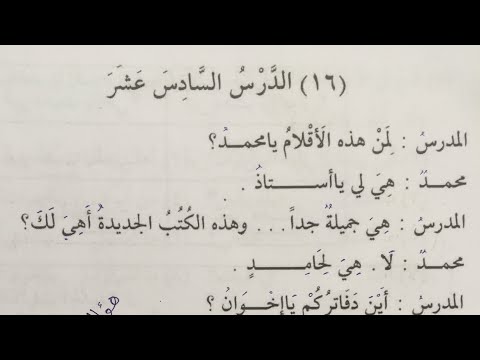 (١٦) الدَّرْسُ السَّادِسَ عَشَرَ
المدرسُ : لِمَنْ هذه الَأقْلامُ يامحمدُ؟
محمدٌ : هِيَ لي ياأستاذُ .
المدرسُ : هِيَ جميلةٌ جداً ... وهذه الكُتُبُ الجديدةُ أَهِيَ لَكَ؟
محمدٌ : لَا . هِيَ لِحَامِدٍ .
المدرسُ : أَيْنَ دَفَاتِرُكُمْ يَاإِخْوَانُ ؟